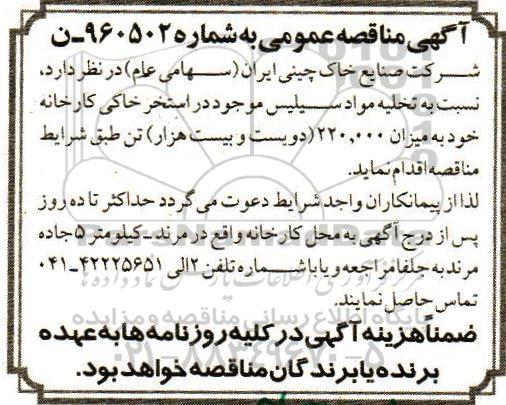 آگهی مناقصه عمومی به شماره ۹۶۰۵۰۲-ن
شرکت صنایع خاک چینی ایران (سهامی عام) در نظر دارد،
نسبت به تخلیه مواد سیلیس موجود در استخر خاکی کارخانه
خود به میزان ۲۲۰,۰۰۰ (دویست و بیست هزار) تن طبق شرایط
مناقصه اقدام نماید.
لذا از پیمانکاران واجد شرایط دعوت می گردد حداکثر تا ده روز
پس از درج آگهی به محل کارخانه واقع در مرند - کیلومتر ۵ جاده
مرند به جلفا مراجعه و یا با شماره تلفن ۲ الی ۴۲۲۲۵۶۵۱-۰۴۱
تماس حاصل نمایند.
ضمناً هزینه آگهی در کلیه روزنامه ها به عهده
برنده یا برندگان مناقصه خواهد بود.
پایگاه اطلاع رسانی مناقصه و مزایده
۰۲۱-۸۸۳۴۹۶۷۰-۵